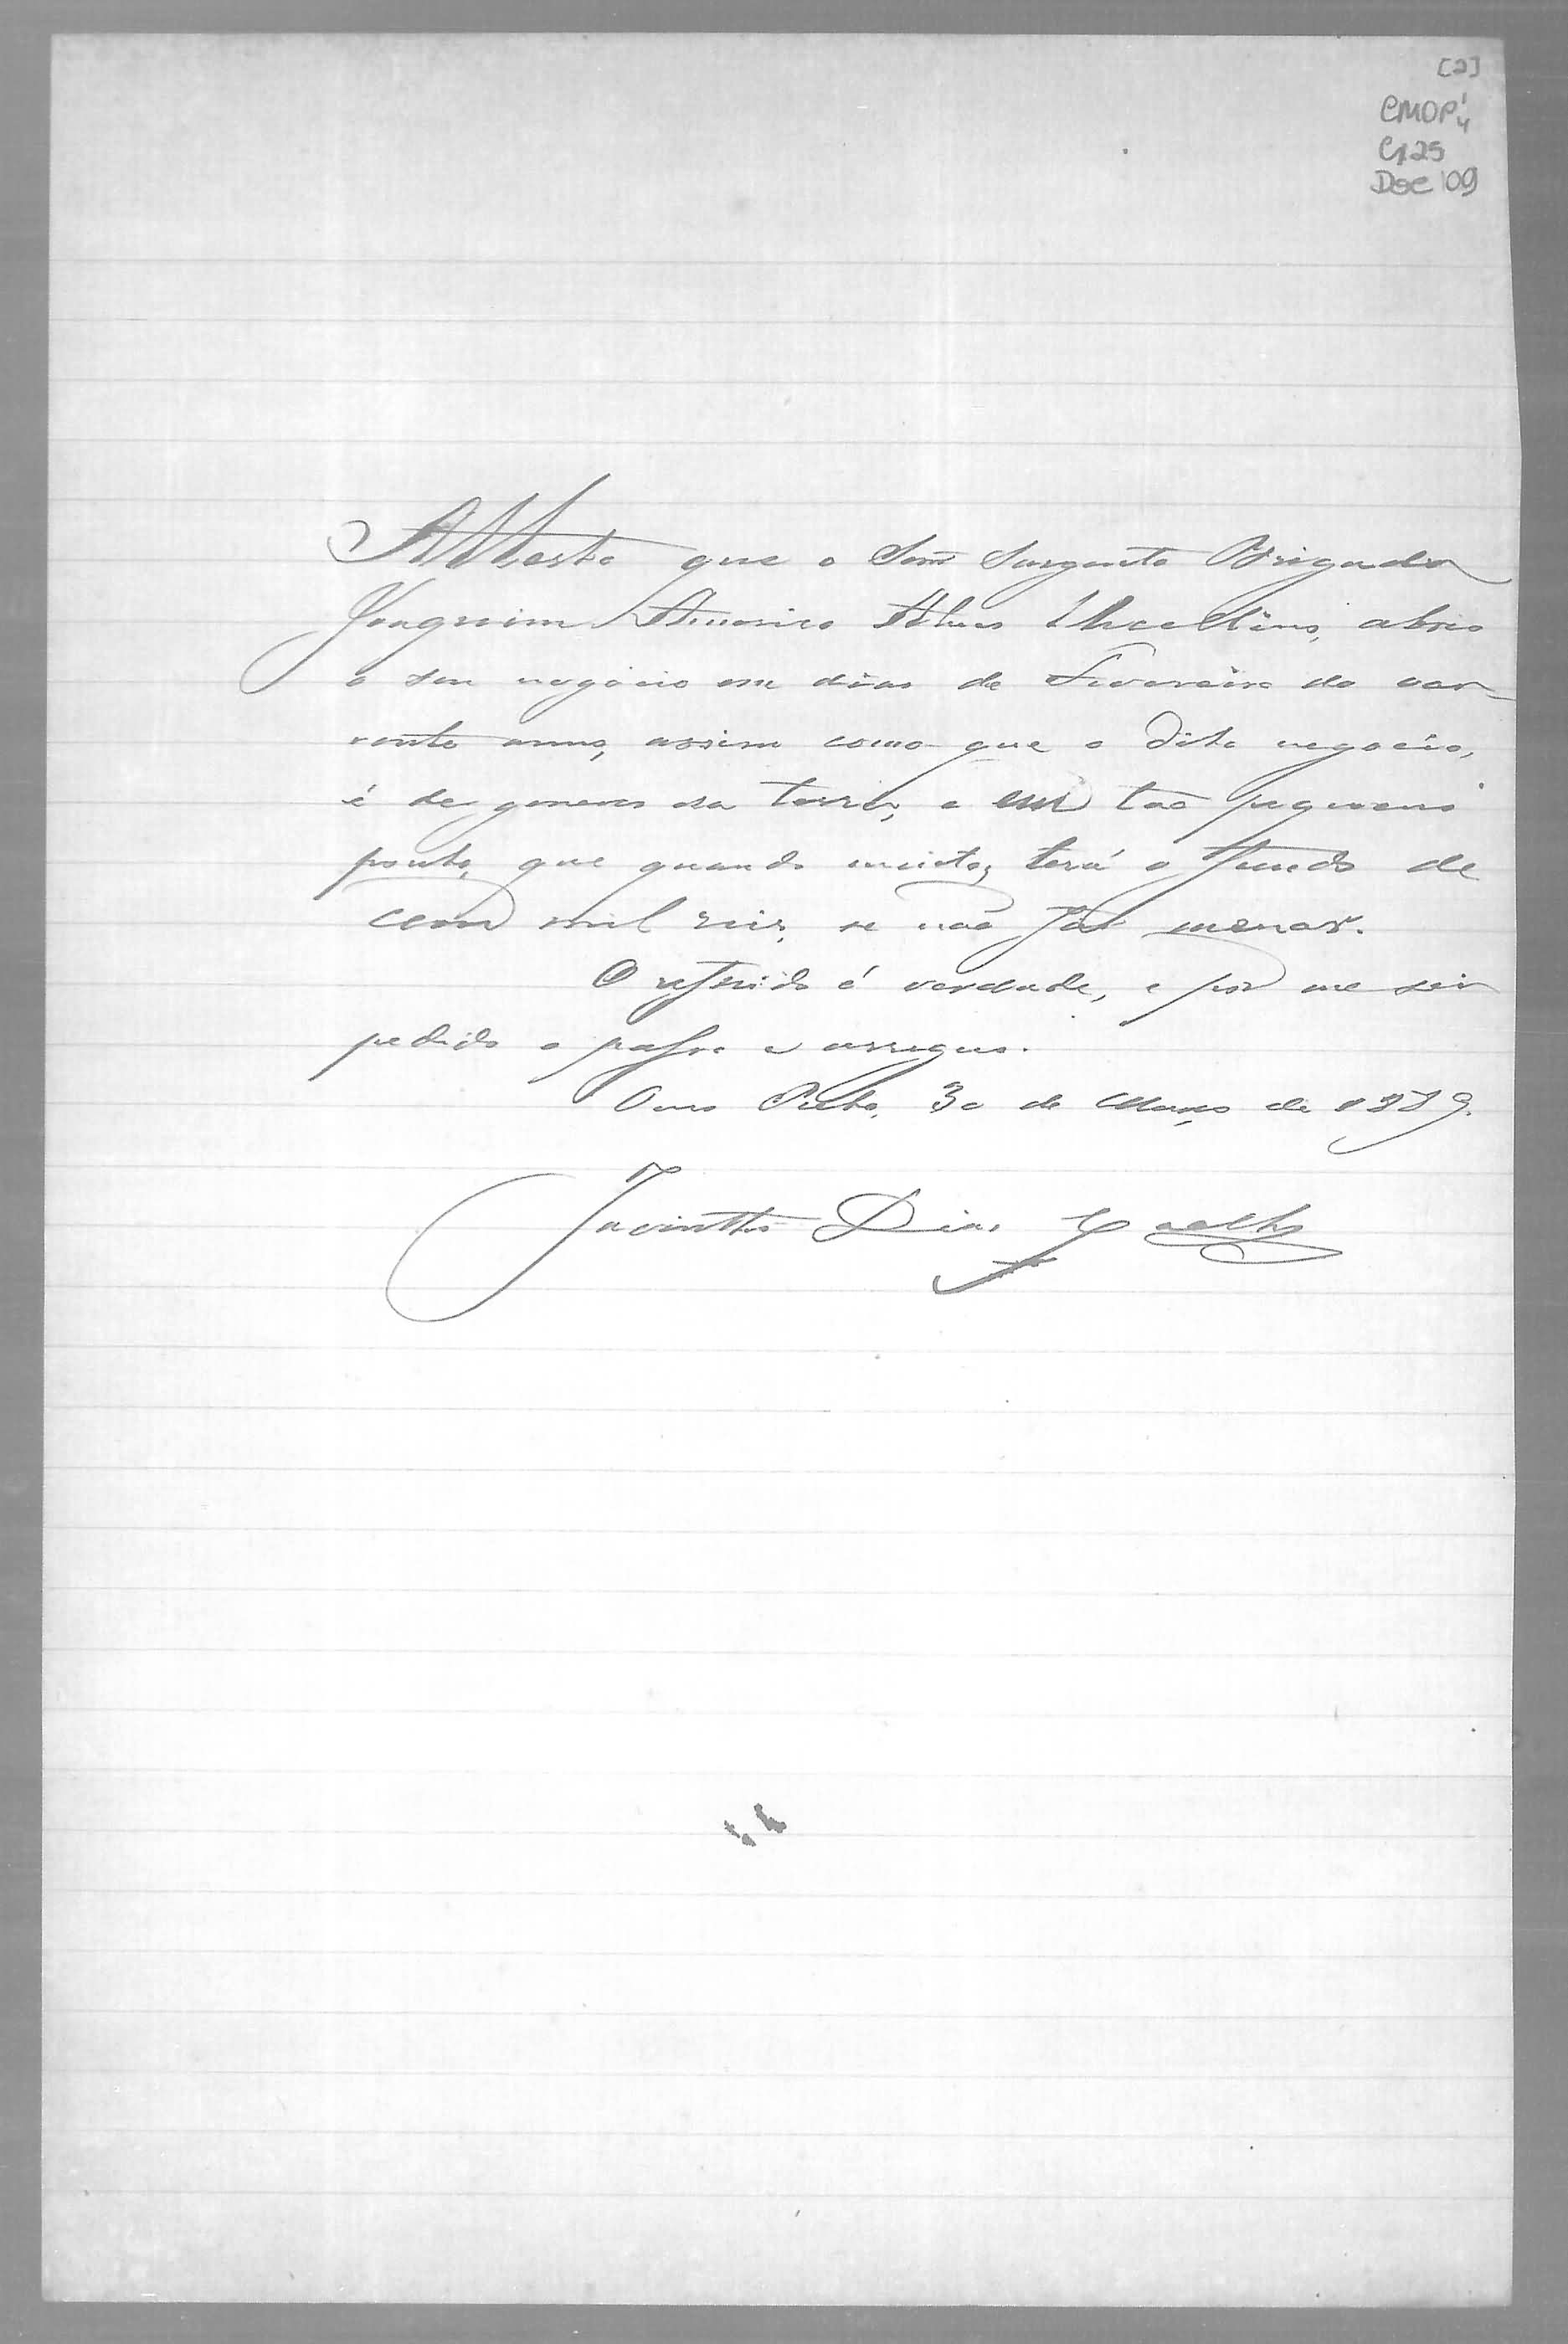 [2]
CMOP 1/4
Cx25
Doc 09
Attesto que o Senr Sargento Brigada
Joaquim Americo Alves abrio
o seu negocio em dias de Fevereiro do cor-
rente anno, assim como que o dito negocio,
é de generos da terra, e em tão pequeno
ponto, que quando muito, terá o fundo de
cem mil reis, se não fôr menor.
O referido é verdade, e por me ser
pedido o passo e assigno.
Ouro Preto, 30 de Março de 1889.
Jacintho Dias Coelho